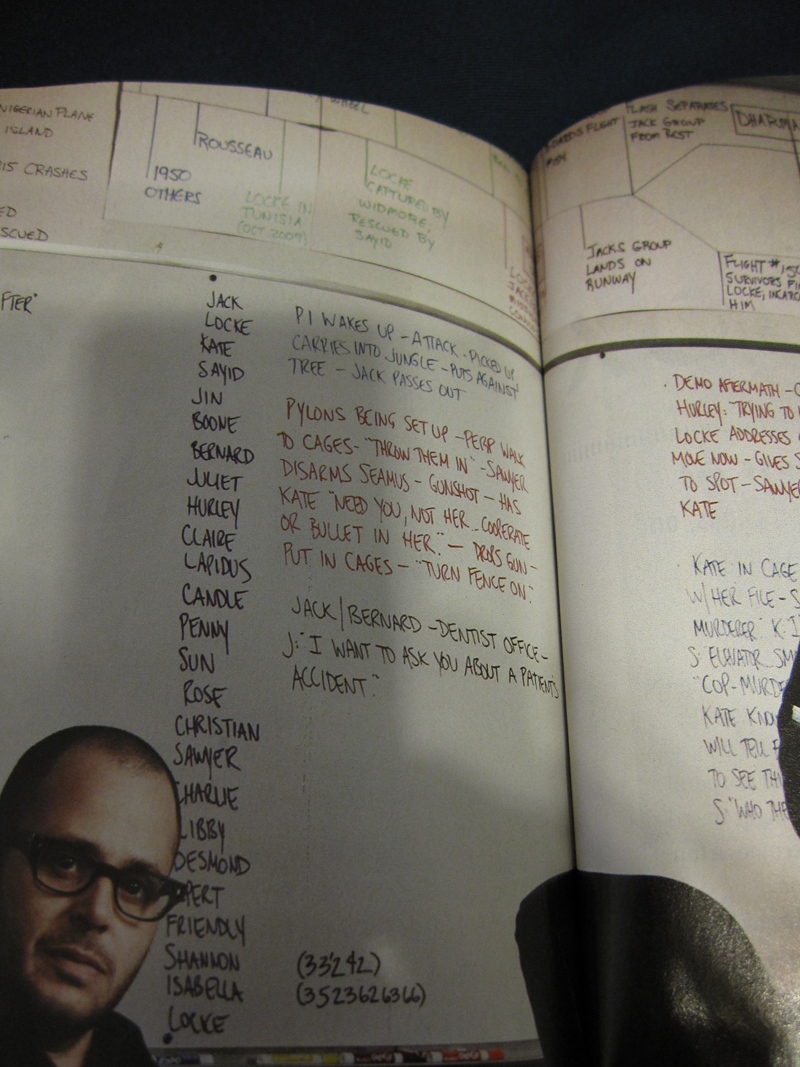 NIGERIAN PLANE
ISLAND
15 CRASHES
ED
SCUED
ROUSSEAU
1950
OTHERS
LOCKE IN
TUNISIA
(OCT 2007)
LOCKE
CAPTURED BY
WIDMORE,
RESCUED BY
SAYID
FLIGHT
FLASH SEPARATES
JACK GROUP
FROM REST
DHARMA
JACKS GROUP
LANDS ON
RUNWAY
FLIGHT #15
SURVIVORS
LOCKE,
HIM
FTER"
JACK
LOCKE
KATE
SAYID
JIN
BOONE
BERNARD
JULIET
HURLEY
CLAIRE
LAPIDUS
CANDLE
PENNY
SUN
ROSE
CHRISTIAN
SAWYER
CHARLIE
LIBBY
DESMOND
PERT
FRIENDLY
SHANNON
ISABELLA
LOCKE
P1 WAKES UP - ATTACK - PICKED UP
CARRIES INTO JUNGLE - PUTS AGAINST
TREE - JACK PASSES OUT
PYLONS BEING SET UP - PERP WALK
TO CAGES - "THROW THEM IN" - SAWYER
DISARMS SEAMUS - GUNSHOT - HAS
KATE "NEED YOU, NOT HER. COOPERATE
OR BULLET IN HER." - DROPS GUN -
PUT IN CAGES - "TURN FENCE ON."
JACK/BERNARD - DENTIST OFFICE -
J: "I WANT TO ASK YOU ABOUT A PATIENT'S
ACCIDENT."
(33242)
(3523626366)
DEMO AFTERMATH -
HURLEY: "TRYING TO
LOCKE ADDRESSES
MOVE NOW - GIVES
TO SPOT - SAWYER
KATE
KATE IN CAGE
W/HER FILE - S
MURDERER" K: I
S: ELEVATOR
"COP-MURDE
KATE KNO
WILL TELL
TO SEE THI
S: "WHO THE